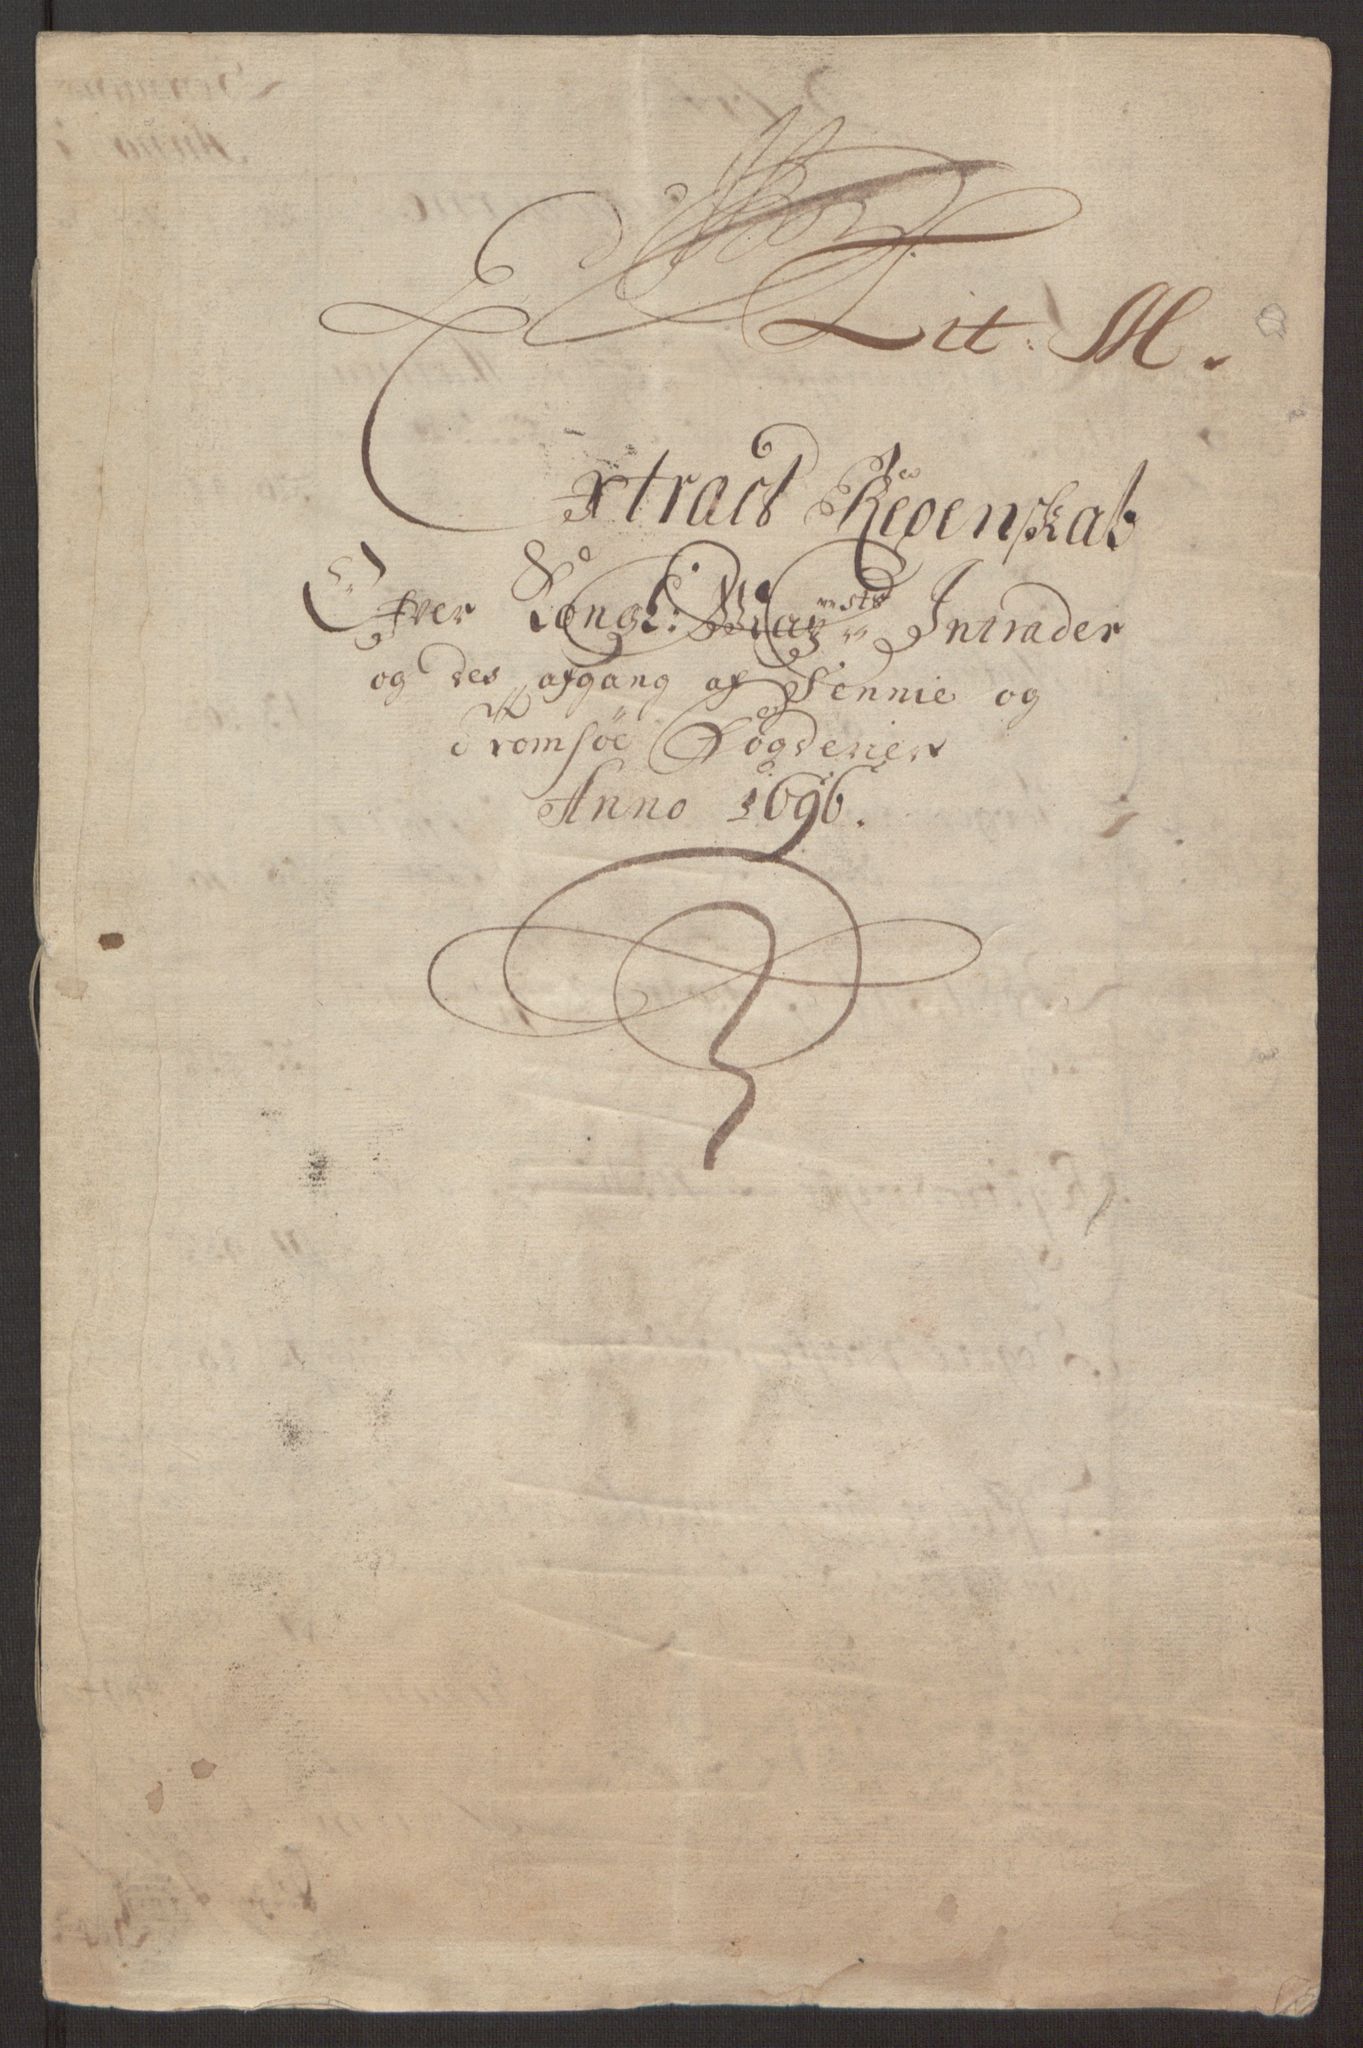 Lit. M.
Extract Regenskab
Ofver Kongl: May:sts Intrader
og des afgang af Sennie og
Tromsöe Fögderier
Anno 1696.